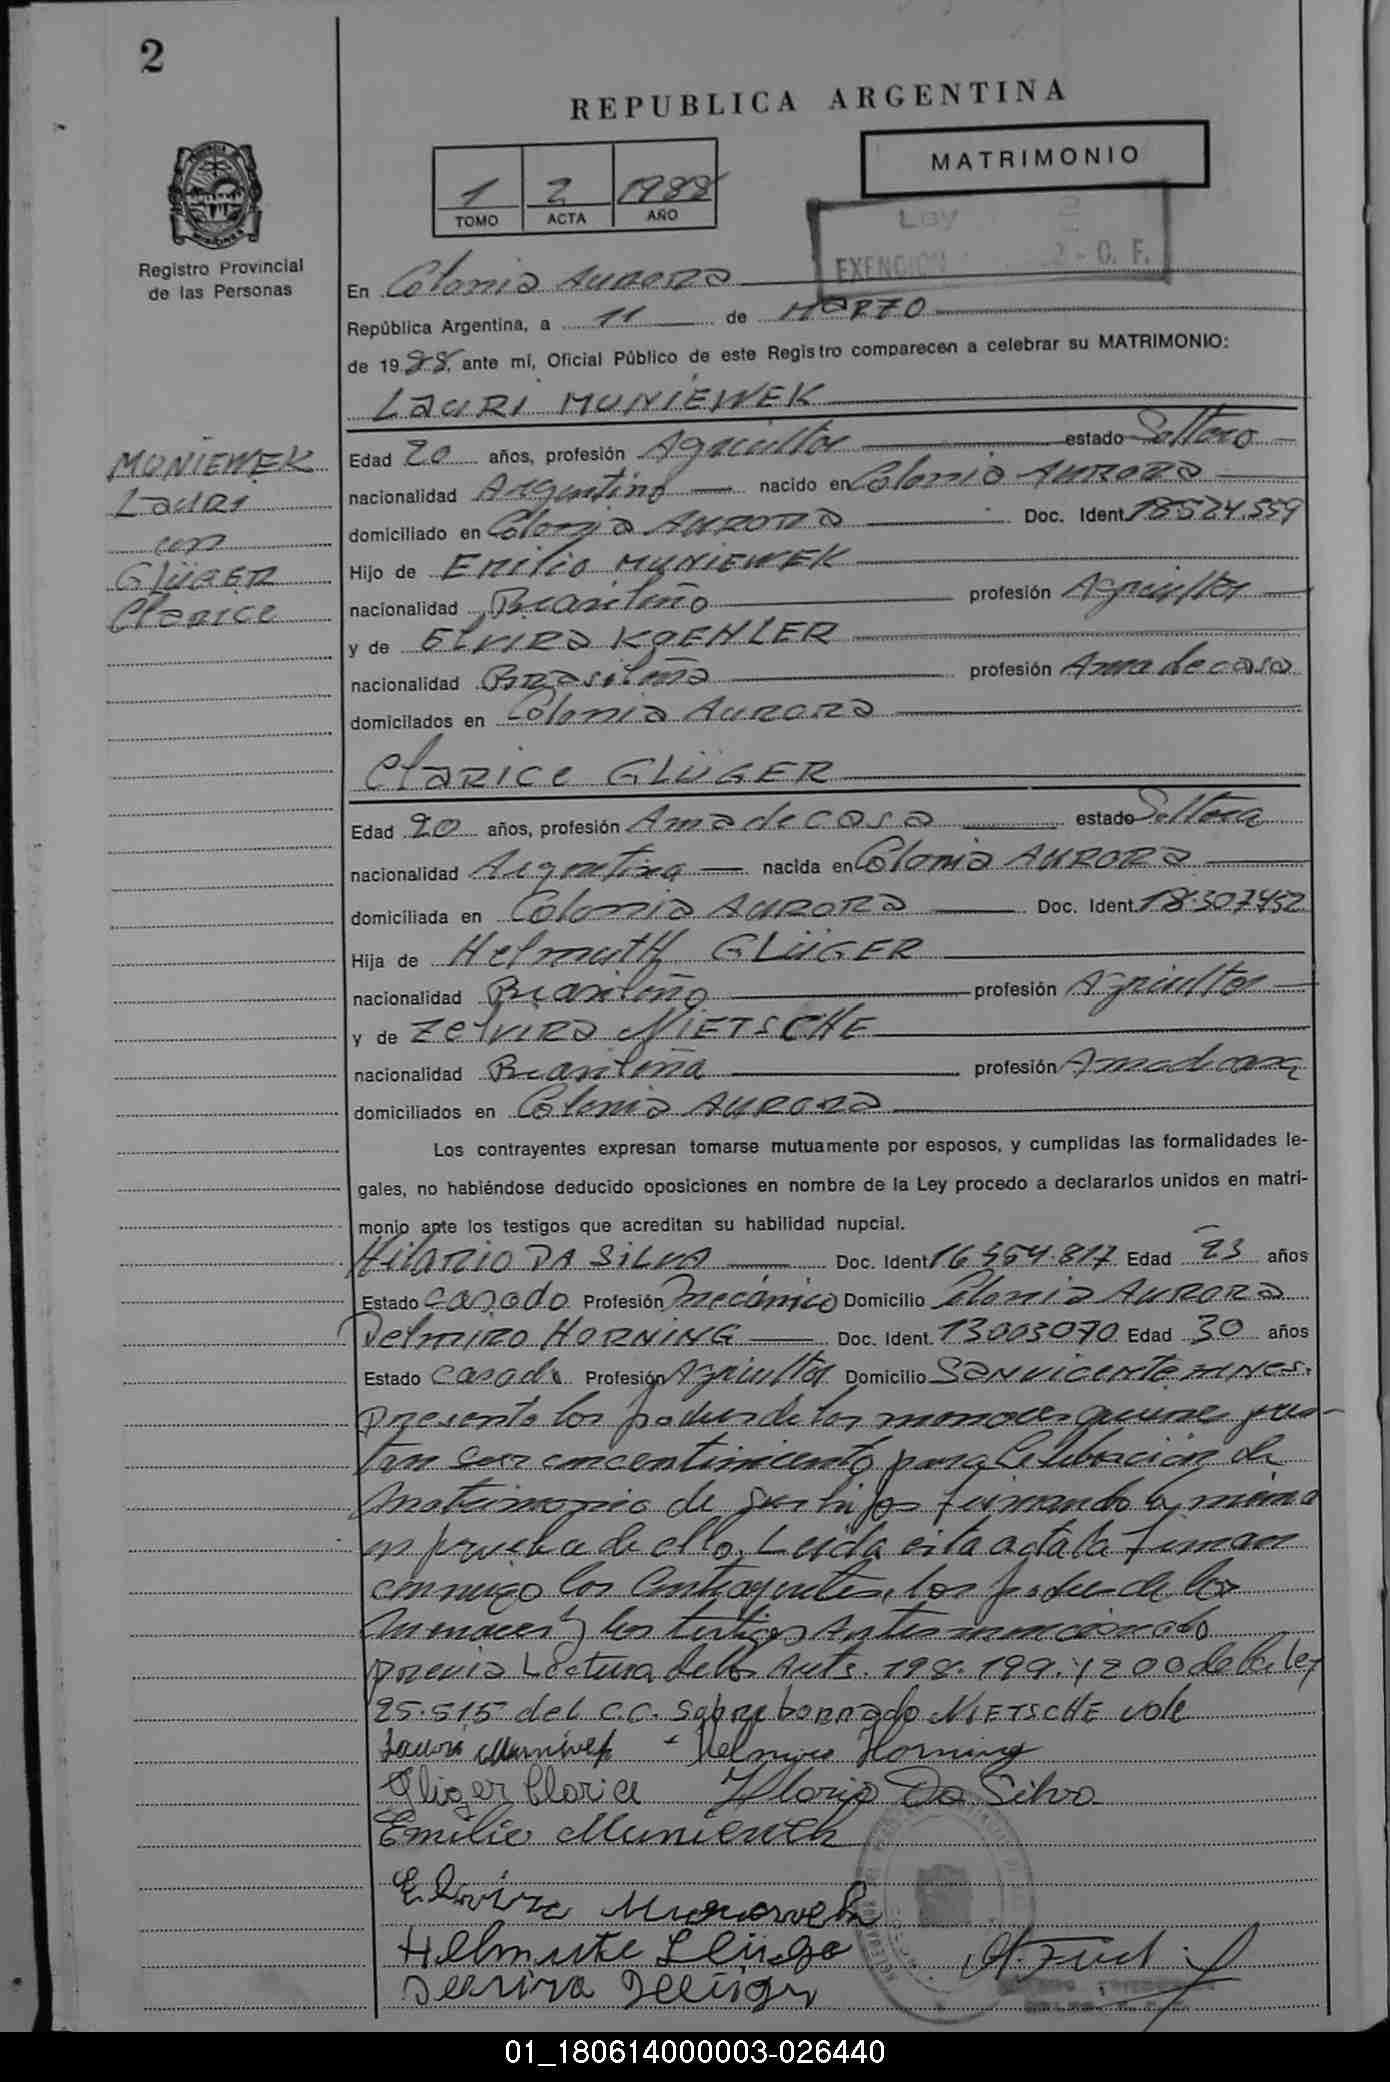 2
REPUBLICA ARGENTINA
MATRIMONIO
1 2 1988
TOMO ACTA AÑO
Ley
EXENCION 2 - O. F.
Registro Provincial
de las Personas
En Colonia Aurora
República Argentina, a 11 de Marzo
de 1988, ante mí, Oficial Público de este Registro comparecen a celebrar su MATRIMONIO:
Lauri MUNIEWEK
MUNIEWEK
Lauri
con
GLÜGER
Clarice
Edad 20 años, profesión Agricultor estado Soltero
nacionalidad Argentino nacido en Colonia Aurora
domiciliado en Colonia Aurora Doc. Ident. 18524.559
Hijo de Emilio MUNIEWEK
nacionalidad Brasileño profesión Agricultor
y de Elvira KOEHLER
nacionalidad Brasileña profesión Ama de casa
domicilados en Colonia Aurora
Clarice GLÜGER
Edad 20 años, profesión Ama de casa estado Soltera
nacionalidad Argentina nacida en Colonia Aurora
domiciliada en Colonia Aurora Doc. Ident. 18.307452
Hija de Helmuth GLÜGER
nacionalidad Brasileño profesión Agricultor
y de Zelvira NIETSCHE
nacionalidad Brasileña profesión Ama d casa
domiciliados en Colonia Aurora
Los contrayentes expresan tomarse mutuamente por esposos, y cumplidas las formalidades le-
gales, no habiéndose deducido oposiciones en nombre de la Ley procedo a declararlos unidos en matri-
monio ante los testigos que acreditan su habilidad nupcial.
Hilario DA SILVA Doc. Ident. 16.554.817 Edad 23 años
Estado casado Profesión Mecánico Domicilio Colonia Aurora
Delmiro HORNING Doc. Ident. 13003070 Edad 30 años
Estado Casado Profesión Agricultor Domicilio San Vicente Mnes.
Presente los padres de los menores quiene pres-
tan su concentimiento para Celebración de
Matrimonio de sus hijos firmando la misma
en prueba de ello. Leida esta acta la firman
conmigo los Contrayentes, los padres de los
menores y los testigos Antes mencionado
previa Lectura de los Arts. 198. 199. y 200 de la Ley
25.515 del C.C. Sobre borrado NIETSCHE vale
Lauri Delmiro Horning
Gluger Clarice Ilario Da Silva
Emilio Muniewek
Elvira
Helmute
01_180614000003-026440